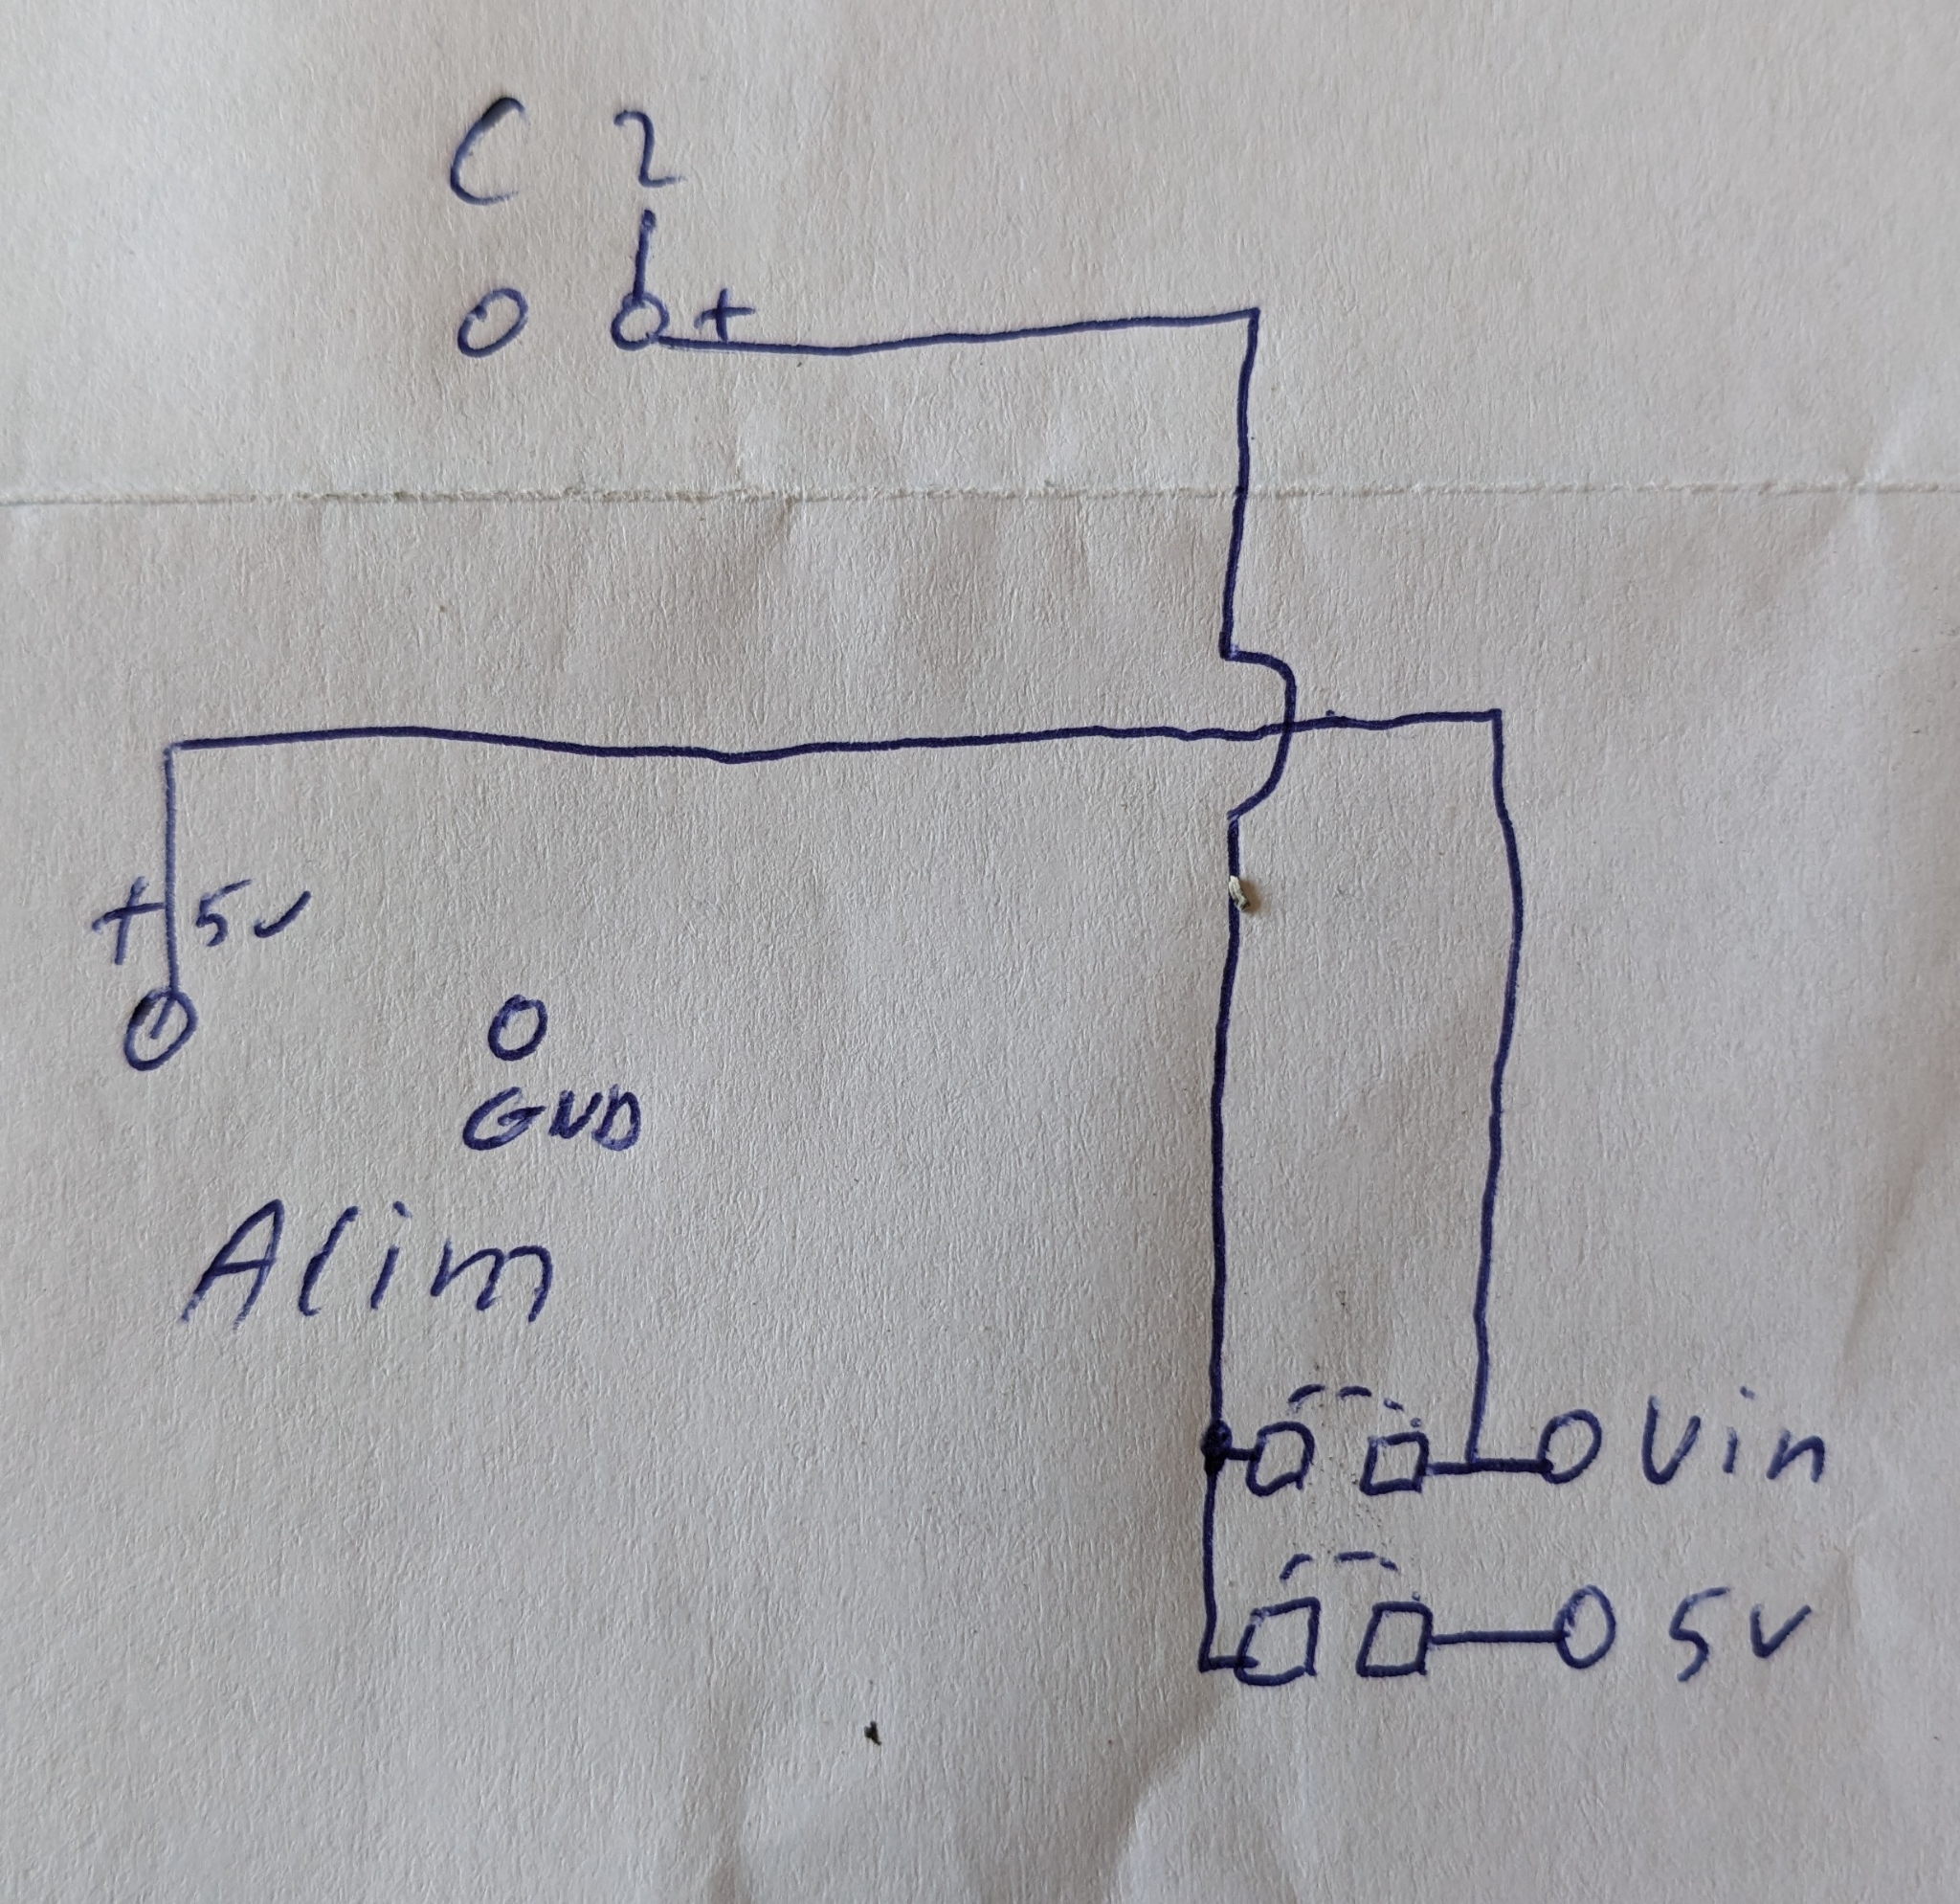 C 2
+
+ 5v
GND
Alim
Vin
5v